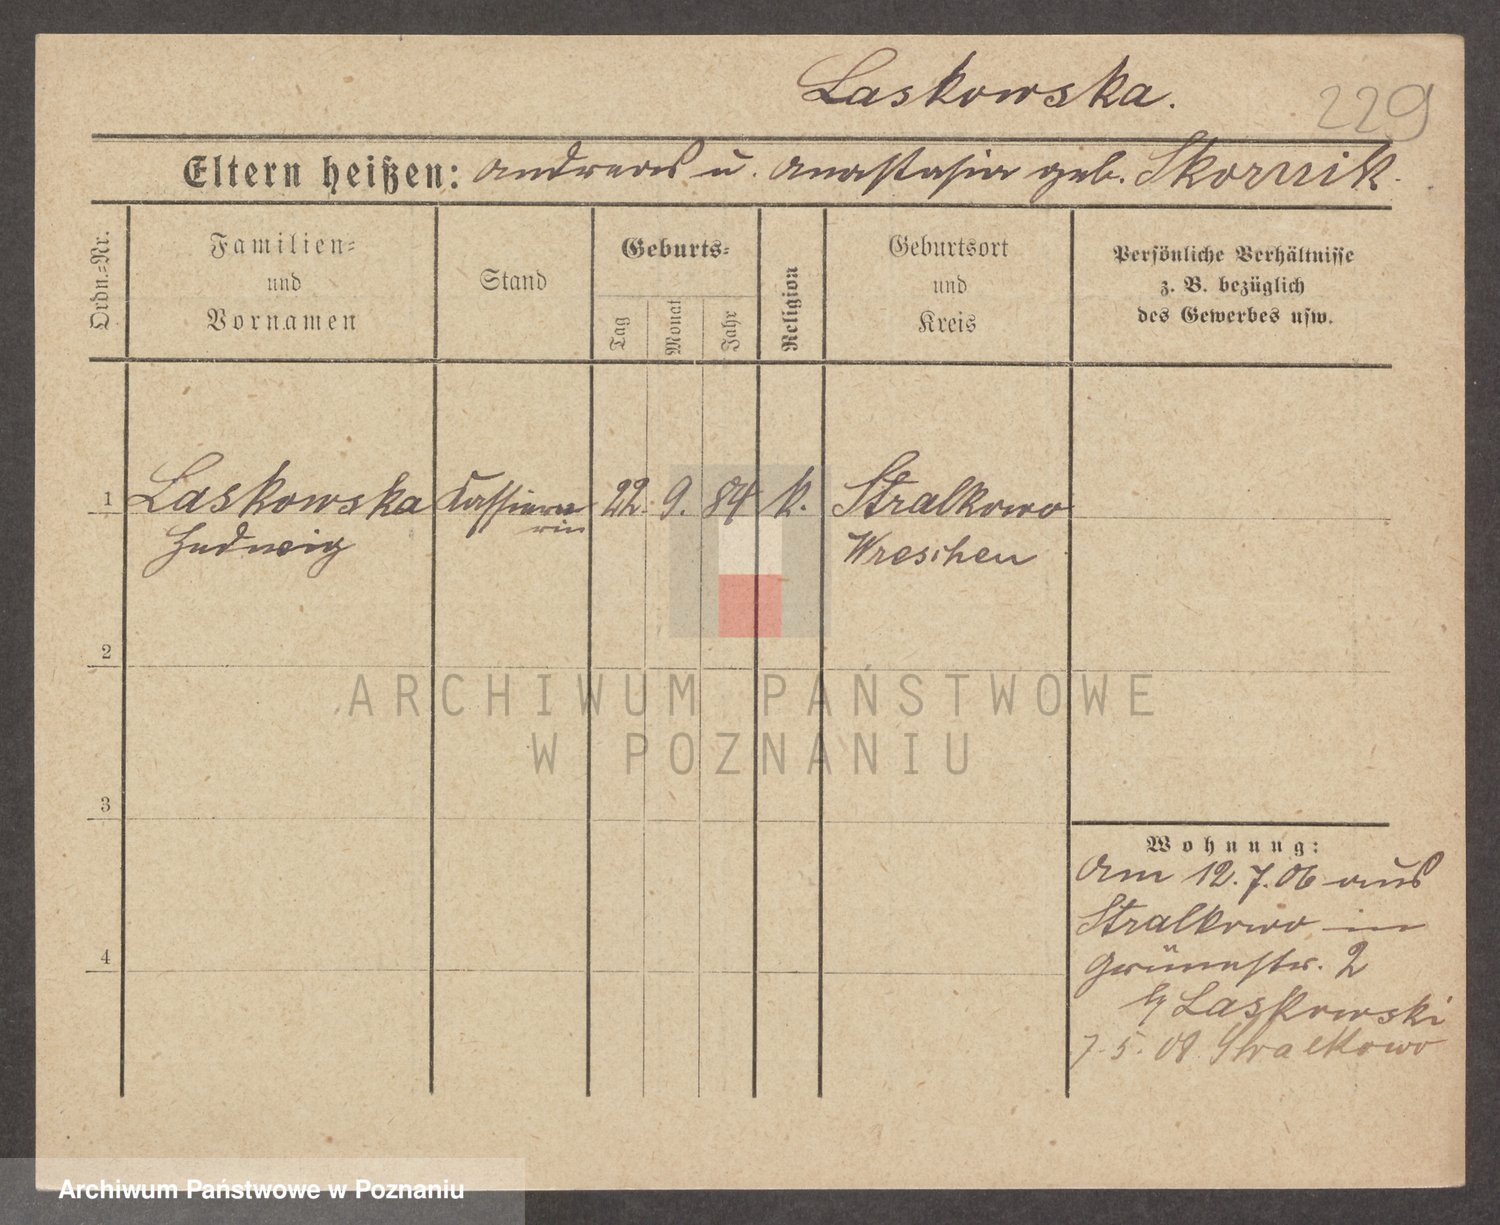 Laskowska.
229
Eltern heißen: Andreas u. Anastasia geb. Skornik.
Ordn.=Nr.
Familien=
und
Vornamen
Stand
Geburts=
Tag
Monat
Jahr
Religion
Geburtsort
und
Kreis
Persönliche Verhältnisse
z. B. bezüglich
des Gewerbes usw.
1 Laskowska Kassiere 22. 9. 84 k. Stralkowo
rin
Hedwig Wreschen
2
ARCHIWUM PAŃSTWOWE
W POZNANIU
3
Wohnung:
Am 12.7.06 aus
Stralkowo in
4
Grünestr. 2
b/ Laskowski
7.5.08. Stralkowo
Archiwum Państwowe w Poznaniu